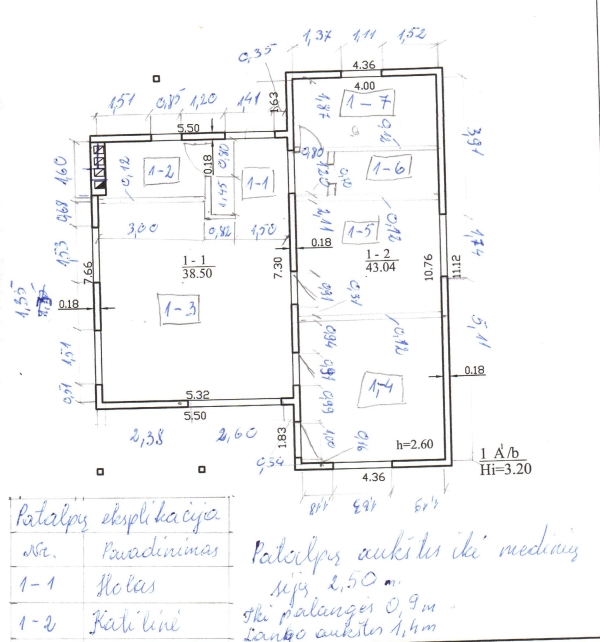 1,37 1,11 1,52
4.36
0,35
4.00
1,51 0,85 1,20 1,41
1.63
5.50
1,87
1-7
0,12
3,91
1,60
0,12
1-2
0.18
0,80
1-1
0,80
1,20
0,12
1-6
0,68
1,45
3,00 0,82 1,50
2,11
0,12
1-5
1,74
1,53
7.66
1 - 1
38.50
7.30
0.18
1 - 2
43.04
10.76
11.12
1,35
0.18
1-3
0,91
0,31
0,12
5,11
1,51
0,94
0,91
1-4
0.18
0,51
5.32
5.50
0,99
2,38 2,60
1.83
1,00
0,16
h=2.60
0,34
1 A¹/b
Hi=3.20
4.36
1,18 1,63 1,19
Patalpų eksplikacija
Nr. Pavadinimas
1-1 Holas
1-2 Katilinė
Patalpų aukštis iki medinių
sijų 2,50 m.
Iki palangės 0,9 m.
Lango aukštis 1,4m